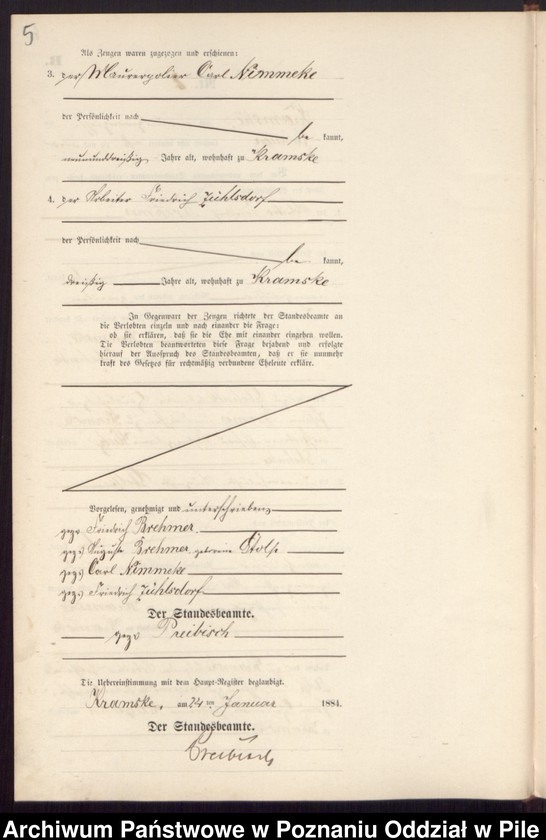 5
Als Zeugen waren zugezogen und erschienen:
3. der Maurerpolier Carl Nimmeke
der Persönlichkeit nach
be kannt,
neununddreißig Jahre alt, wohnhaft zu Kramske
4. der Arbeiter Friedrich Zühlsdorf
der Persönlichkeit nach
be kannt,
dreißig Jahre alt, wohnhaft zu Kramske
In Gegenwart der Zeugen richtete der Standesbeamte an
die Verlobten einzeln und nach einander die Frage:
ob sie erklären, daß sie die Ehe mit einander eingehen wollen.
Die Verlobten beantworteten diese Frage bejahend und erfolgte
hierauf der Ausspruch des Standesbeamten, daß er sie nunmehr
kraft des Gesetzes für rechtmäßig verbundene Eheleute erkläre.
Vorgelesen, genehmigt und unterschrieben
gez. Friedrich Brehmer
gez. Auguste Brehmer geborene Stolp
gez. Carl Nimmeke
gez. Friedrich Zühlsdorf
Der Standesbeamte.
gez. Preibisch
Die Uebereinstimmung mit dem Haupt-Register beglaubigt.
Kramske, am 24 ten Januar 1884.
Der Standesbeamte.
Preibisch
Archiwum Państwowe w Poznaniu Oddział w Pile